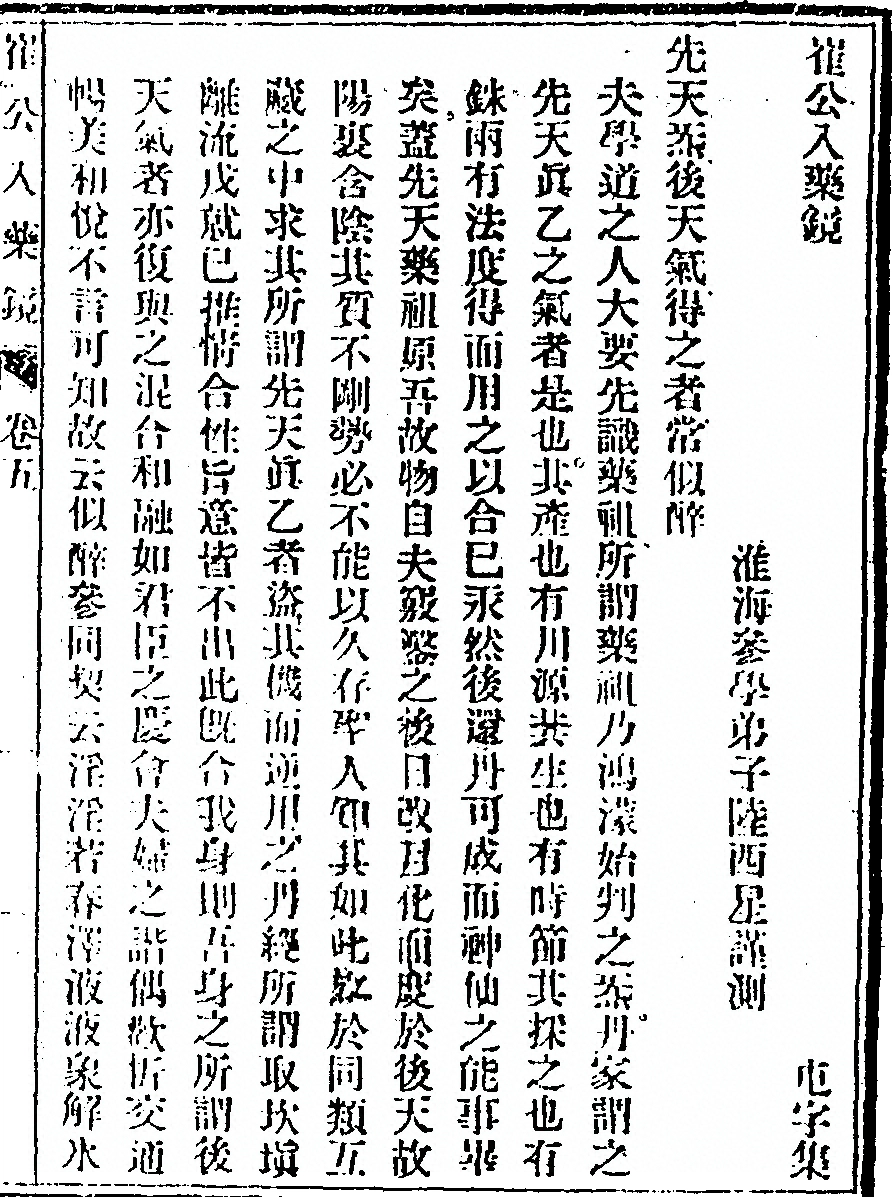 崔公入藥鏡
屯字集
淮海參學弟子陸西星謹測
先天炁後天氣得之者常似醉
夫學道之人大要先識藥祖所謂藥祖乃鴻濛始判之炁丹家謂之
先天眞乙之氣者是也其產也有川源其生也有時節其採之也有
銖兩有法度得而用之以合已汞然後還丹可成而神仙之能事畢
矣蓋先天藥祖原吾故物自夫竅鑿之後日改月化而度於後天故
陽裏含陰其質不剛勢必不能以久存聖人知其如此故於同類互
藏之中求其所謂先天眞乙者盜其機而逆用之丹經所謂取坎塡
離流戊就已推情合性旨意皆不出此旣合我身則吾身之所謂後
天氣者亦復與之混合和融如君臣之慶會夫婦之諧偶欣忻交通
暢美和悅不言可知故云似醉參同契云淫淫若春澤液液象解氷
崔公入藥鏡
卷五